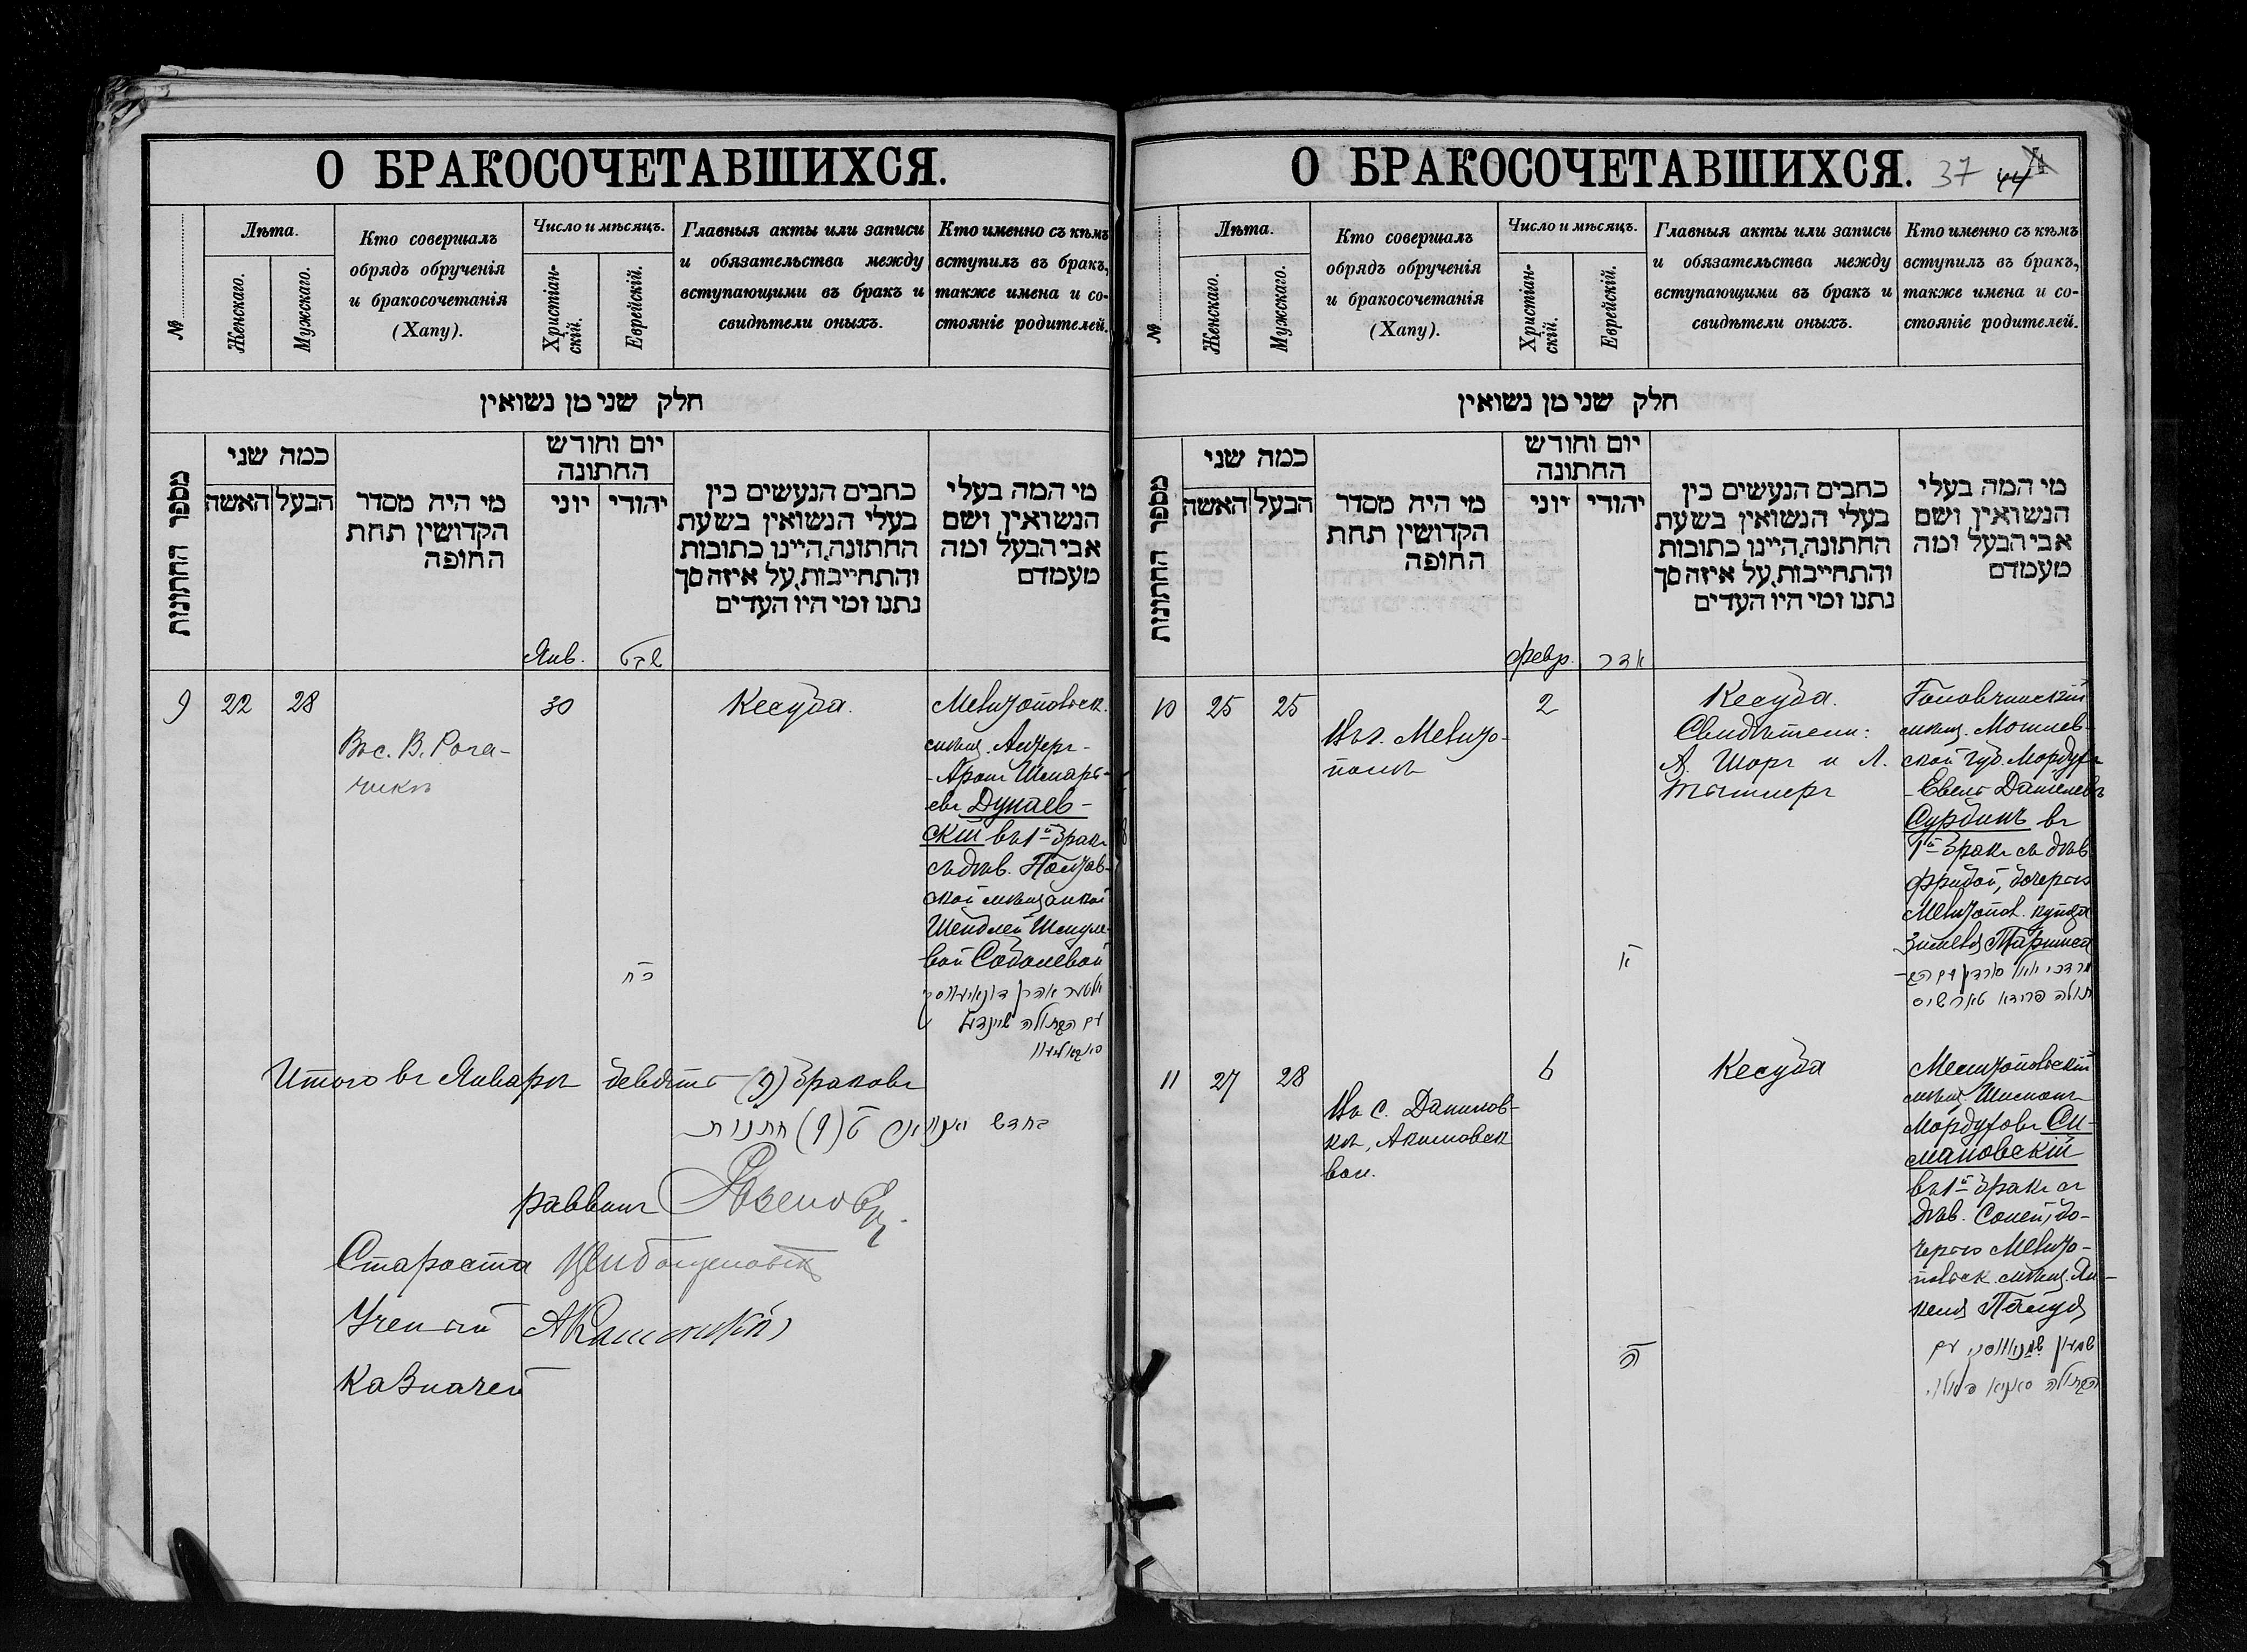 О БРАКОСОЧЕТАВШИХСЯ.
№
Лѣта.
Женскаго.
Мужскаго.
Кто совершалъ
обрядъ обрученія
и бракосочетанія
(Хапу).
Число и мѣсяцъ.
Христіан-
скій.
Еврейскій.
Главныя акты или записи
и обязательства между
вступающими въ бракъ и
свидѣтели оныхъ.
Кто именно съ кѣмъ
вступилъ въ бракъ,
также имена и со-
стояніе родителей.
חלק שני מן נשואין
מספר החתונות
כמה שני
האשה
הבעל
מי היה מסדר
הקדושין תחת
החופה
יום וחודש
החתונה
יוני
יהודי
כתבים הנעשים בין
בעלי הנשואין בשעת
החתונה,היינו כתובות
והתחייבות,על איזה סך
נתנו ומי היו העדים
מי המה בעלי
הנשואין ושם
אבי הבעל ומה
מעמדם
Янв.
שבט
9
22
28
Въ с. В. Рога-
чикѣ
30
כח
Кесуба.
Мелитопольск.
мѣщ. Алтеръ-
-Аронъ Шмарь-
евъ Дунаев-
скій въ 1й бракъ
съ дѣв. Полтав-
ской мѣщанкой
Шейндлей Шмуле-
вой Соболевой
אלטער אהרן דונאיעווסקי
עם הבתולה שיינדעל
סאבאלעוו
Итого въ Январѣ девять (9) браковъ
בחדש יאנואר ט (9) חתונות
раввинъ
Староста
Ученый
Казначей
О БРАКОСОЧЕТАВШИХСЯ.
37
44
№
Лѣта.
Женскаго.
Мужскаго.
Кто совершалъ
обрядъ обрученія
и бракосочетанія
(Хапу).
Число и мѣсяцъ.
Христіан-
скій.
Еврейскій.
Главныя акты или записи
и обязательства между
вступающими въ бракъ и
свидѣтели оныхъ.
Кто именно съ кѣмъ
вступилъ въ бракъ,
также имена и со-
стояніе родителей.
חלק שני מן נשואין
מספר החתונות
כמה שני
האשה
הבעל
מי היה מסדר
הקדושין תחת
החופה
יום וחודש
החתונה
יוני
יהודי
כתבים הנעשים בין
בעלי הנשואין בשעת
החתונה,היינו כתובות
והתחייבות,על איזה סך
נתנו ומי היו העדים
מי המה בעלי
הנשואין ושם
אבי הבעל ומה
מעמדם
февр.
אדר
10
25
25
Въ г. Мелито-
полѣ
2
א
Кесуба.
Свидѣтели:
А. Шоръ и Л.
Головчинскій
мѣщ. Могилев-
ской губ. Мордухъ
-Евель Данилевъ
Сурдинъ въ
1й бракъ съ дѣв.
Фридой, дочерью
Мелитоп. купца
מרדכי
תולה פרידא טארשיס
11
27
28
Въ с. Данилов-
кѣ, Акимовск
вол.
6
ה
Кесуба
Мелитопольскій
мѣщ. Шимонъ
Мордуховъ Си-
мановскій
въ 1й бракъ съ
дѣв. Соней, до-
черью Мелито-
польск. мѣщ. Ян-
келя
שמעון
הבתולה סאניא